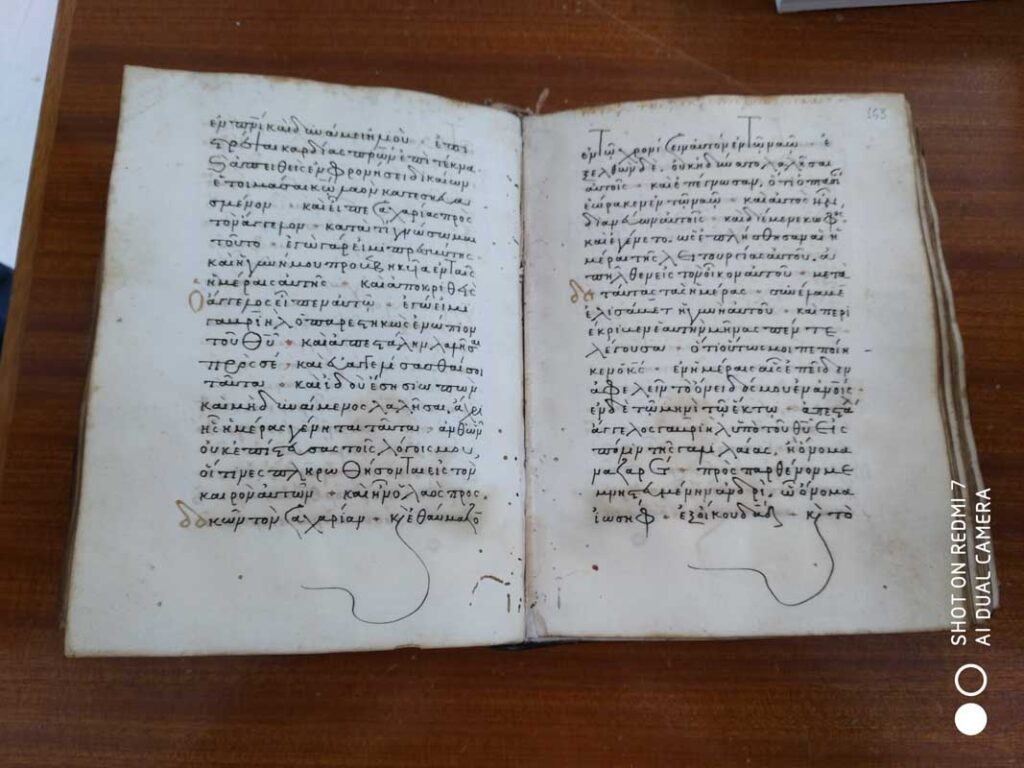 ἐν πνι καὶ δυνάμει ἠλιου · ἐπι
στρέψαι καρδίας πρων ἐπὶ τέκνα·
καὶ ἀπειθεῖς ἐν φρονήσει δικαίων
ἑτοιμάσαι κω λαὸν κατεσκευα
σμένον · καὶ εἶπε ζαχαρίας πρὸς
τὸν ἄγγελον · κατατί γνώσομαι
τοῦτο · ἐγὼ γάρ εἰμι πρεσβύτης
καὶ ἡ γυνή μου προβεβηκυῖα ἐν ταῖς
ἡμέραις αὐτῆς · καὶ ἀποκριθεὶς
Ὁ ἄγγελος εἶπεν αὐτῷ · ἐγώ εἰμι
γαβριὴλ ὁ παρεστηκὼς ἐνώπιον
τοῦ θυ · καὶ ἀπεστάλην λαλῆσαι
πρὸς σέ · καὶ εὐαγγελίσασθαί σοι
ταῦτα · καὶ ἰδοὺ ἔσῃ σιωπῶν
καὶ μὴ δυνάμενος λαλῆσαι, ἄχρι
ἧς ἡμέρας γένηται ταῦτα · ἀνθ' ὧν
οὐκ ἐπίστευσας τοῖς λόγοις μου,
οἵτινες πληρωθήσονται εἰς τὸν
καιρὸν αὐτῶν · καὶ ἦν ὁ λαὸς προσ
δοκῶν τὸν ζαχαρίαν · κὶ ἐθαύμαζο
153
ἐν τῷ χρονίζειν αὐτὸν ἐν τῷ ναῷ · ἐ
ξελθὼν δὲ, οὐκ ἠδύνατο λαλῆσαι
αὐτοῖς · καὶ ἐπέγνωσαν, ὅτι ὀπτασί
ἑώρακεν ἐν τῷ ναῷ · καὶ αὐτὸς ἦν
διανεύων αὐτοῖς · καὶ διέμενε κωφός
καὶ ἐγένετο ὡς ἐπλήσθησαν αἱ ἡ
μέραι τῆς λειτουργίας αὐτοῦ, ἀ
πῆλθεν εἰς τὸν οἶκον αὐτοῦ · μετὰ
δὲ ταύτας τὰς ἡμέρας · συνέλαβε
ἐλισάβετ ἡ γυνὴ αὐτοῦ · καὶ περι
έκρυβεν ἑαυτὴν μῆνας πέντε
λέγουσα · ὅτι οὕτως μοι πεποίη
κεν ὁ κς · ἐν ἡμέραις αἷς ἐπεῖδεν
ἀφελεῖν τὸ ὄνειδός μου ἐν ἀνοις
ἐν δὲ τῷ μηνὶ τῷ ἕκτῳ · ἀπεστάλ
ἄγγελος γαβριὴλ ὑπὸ τοῦ θυ εἰς
πόλιν τῆς γαλιλαίας, ᾗ ὄνομα
ναζαρέτ · πρὸς παρθένον με
μνηστευμένην ἀνδρί, ᾧ ὄνομα
ἰωσὴφ · ἐξ οἴκου δαδ · κὶ τὸ
SHOT ON REDMI 7
AI DUAL CAMERA